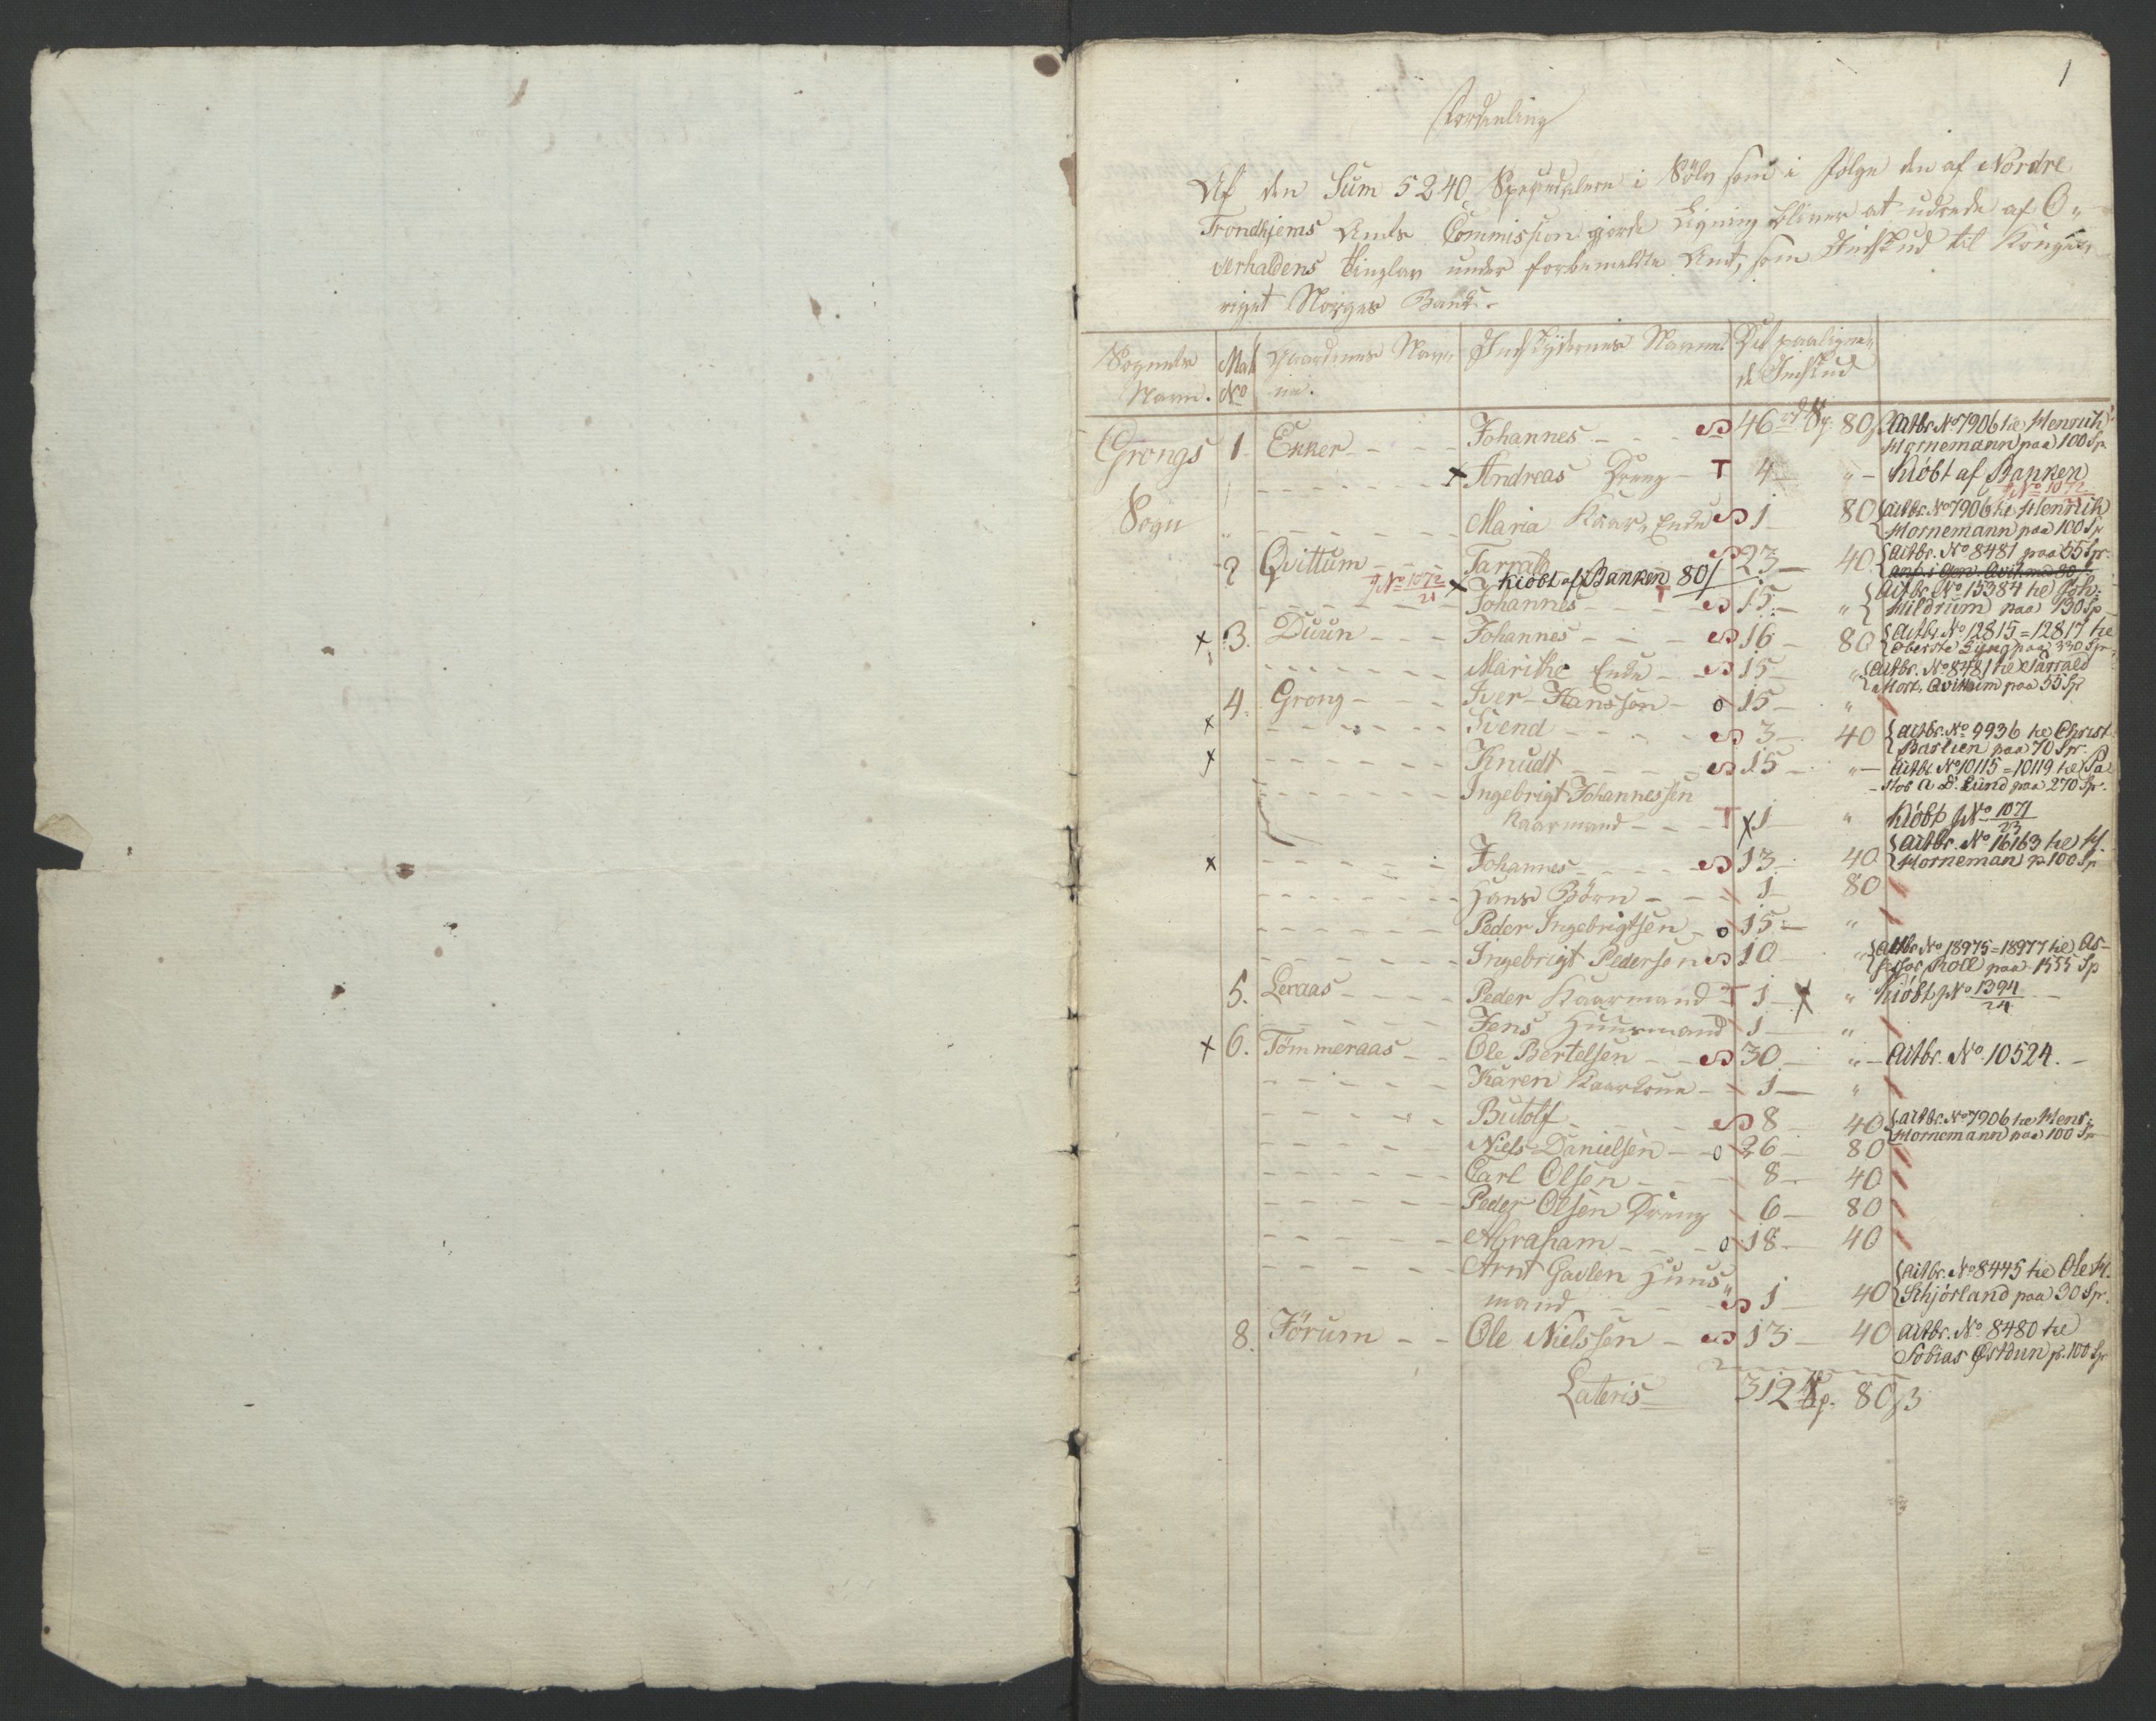 1
Fordeeling
Af den Sum 5240 Speciedalere i Sölv som i Følge den af Nordre
Trondhjems Amts Commission gjorde Ligning bliver at udrede af O„
verhaldens Tinglav under forbemeldte Amt, som Indskud til Konge„
riget Norges Bank.
Sognets Navn. Mat No Gaardenes Navne. Indskydernes Navne. Det paalignede Indskud
Grongs Sogn 1. Ekker Johannes 46 80 Actbr. No 7906 til Henrich
Hornemann paa 100 Sp
Andreas Dreng T 4 „ Kiöbt af Banken
No 1072/21
Maria Kaar„ Enke 1 80 Actbr. No 7906 til Henrich
Hornemann paa 100 Sp
2 Qvittum Tarrald 23 40 Actbr. No 8481 paa 55 Sp.
No 1072/21 x Kiöbt af Banken 80
Johannes 15 „ Actbr. No 15384 til Joh.
Mildrum paa 130 Sp
x 3. Duun Johannes 16 80 Actbr. No 12815=12817 til
Oberste Ljung paa 330 Sp.
Marithe Enke 15 „ Actbr. No 8481 til Tarrald
Mort. Qvittum paa 55 Sp
4. Grong Iver Hanssön o 15 „
x Svend 3 40 Actbr. No 9936 til Christ
Bartien paa 70 Sp.
x Knudt 15 „ Actbr No 10115=10119 til Pa
stor A. D. Lund paa 270 Sp.
Ingebrigt Johannessen
Kaarmand T x 1 „ Kiöbt No 1071/23
x Johannes 13 40 Actbr. No 16163 til H.
Horneman p. 100 Sp
Hans Börn 1 80
Peder Ingebrigtsen o 15 „
Ingebrigt Pedersen 10 „ Actbr No 18975=18977 til As-
sessor Roll paa 1555 Sp
5. Leraas Peder Kaarmand T 1 x „ Kiöbt No 1394/24
Jens Huusmand 1 „
x 6. Tömmeraas Ole Bertelsen 30 „ Actbr. No. 10524.
Karen Kaarkone 1 „
Butolf 8 40 Actbr. No 7906 til Henr.
Hornemann paa 100 Sp
Niels Danielsen o 26 80
Carl Olsen 8 40
Peder Olsen Dreng 6 80
Abraham o 18 40
Arnt Gavlen Huus„
mand 1 40 Actbr. No 8445 til Ole H.
Skhjörland paa 30 Sp.
8. Förum Ole Nielssen 13 40 Actbr. No 8480 til
Tobias Östdun p. 100 Sp
Lateris 312 Sp. 80 ß